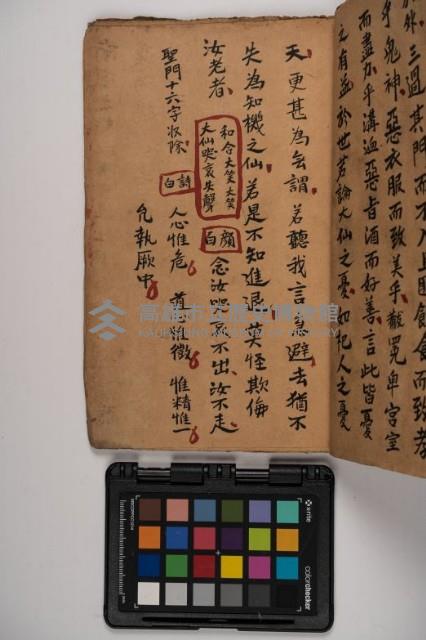 外三過其門而
食而致孝
乎鬼神惡衣服而致美乎黻冕卑宮室
而盡力乎溝洫惡旨酒而好善言此皆憂
之有益於世若論大仙之憂如杞人之憂
天更甚為無謂若聽我言急避去猶不
失為知機之仙若是不知進退莫怪欺侮
汝老者
和合大笑大笑
大仙哭哀失聲
顏白
念汝哭哀不出汝不走
聖門十六字收除
詩白
人心惟危 道心惟微 惟精惟一
允執厥中
高雄市立歷史博物館
KAOHSIUNG MUSEUM OF HISTORY
x-rite
colorchecker